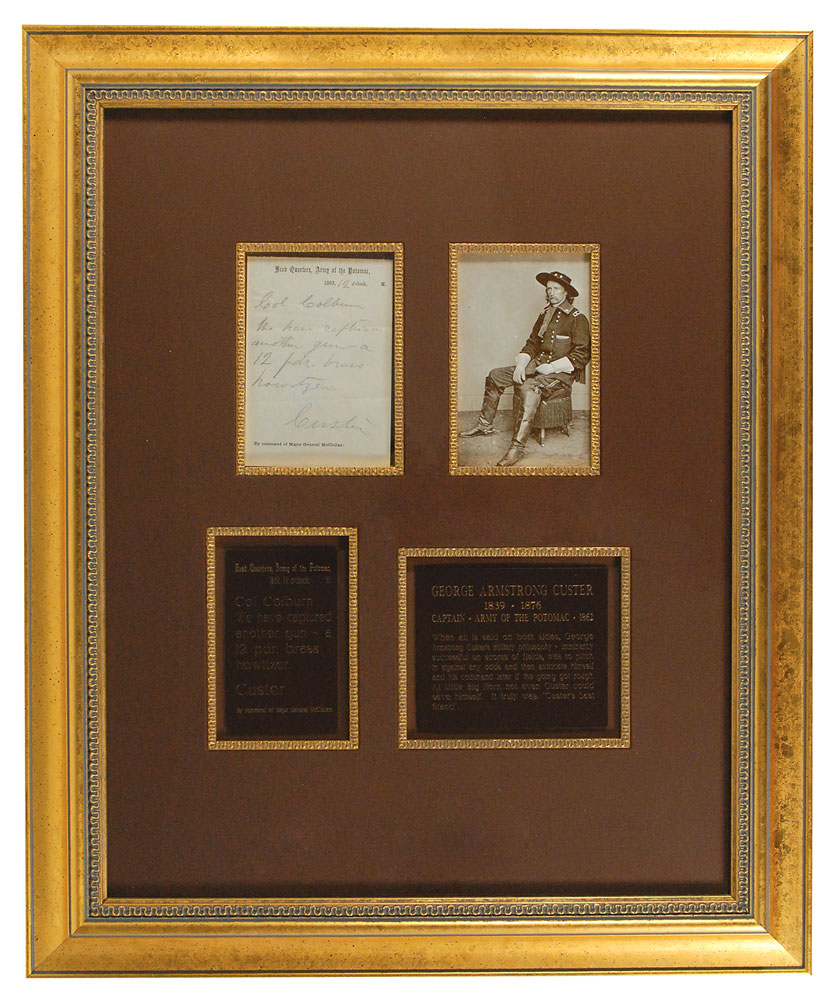 Head Quarters, Army of the Potomac,
1862, 12 o'clock, M.
Col Colburn
We have captured
another gun - a
12 pdr. brass
howitzer
Custer
By command of Major General McClellan:
Head Quarters, Army of the Potomac,
1862, 12 o'clock M.
Col Colburn
We have captured
another gun - a
12 pdr. brass
howitzer.
Custer
By command of Major General McClellan
GEORGE ARMSTRONG CUSTER
1839 • 1876
CAPTAIN • ARMY OF THE POTOMAC • 1862
When all is said on both sides, George
Armstrong Custer's military philosophy -
successful on scores of fields, was to pitch
in against any odds and then extricate himself
and his command later if the going got rough.
At Little Big Horn not even Custer could
save himself. It truly was "Custer's Last
Stand".